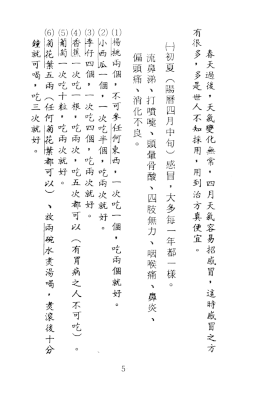 春天過後，天氣變化無常，四月天氣容易招感冒，這時感冒之方
有很多，多是世人不知採用，用到治方真便宜。
㈠初夏（陽曆四月中旬）感冒，大多每一年都一樣。
流鼻涕、打噴嚏、頭暈骨酸、四肢無力、喉嚨痛、鼻炎、
偏頭痛、消化不良。
⑴楊桃兩個，不可摻任何東西，一次吃一個，吃兩個就好。
⑵小西瓜一個，一次吃半個，吃兩次就好。
⑶李仔四個，一次吃四個，吃兩次就好。
⑷香蕉一次吃一根，吃兩次，吃五次都可以（有胃病之人不可吃）。
⑸葡萄一次吃十粒，吃兩次就好。
⑹菊花葉五兩（任何菊花葉都可以）、放兩碗水煮湯喝，煮滾後十分
鐘就可喝，吃三次就好。
5